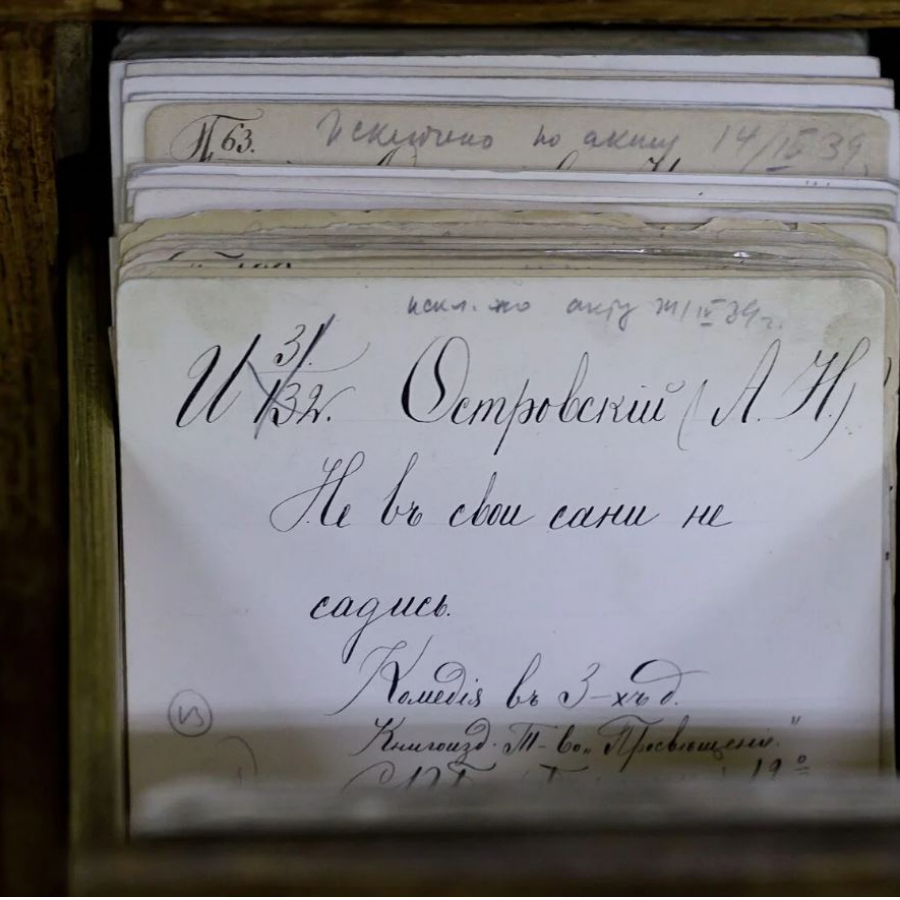 П 63. Исключено по акту 14/IV 39.
искл. по акту 14/IV 39 г.
И 31/132. Островскій (А. Н.)
Не въ свои сани не
садись.
Комедія въ 3-хъ д.
Книгоизд. Т-во „Просвѣщеніе."